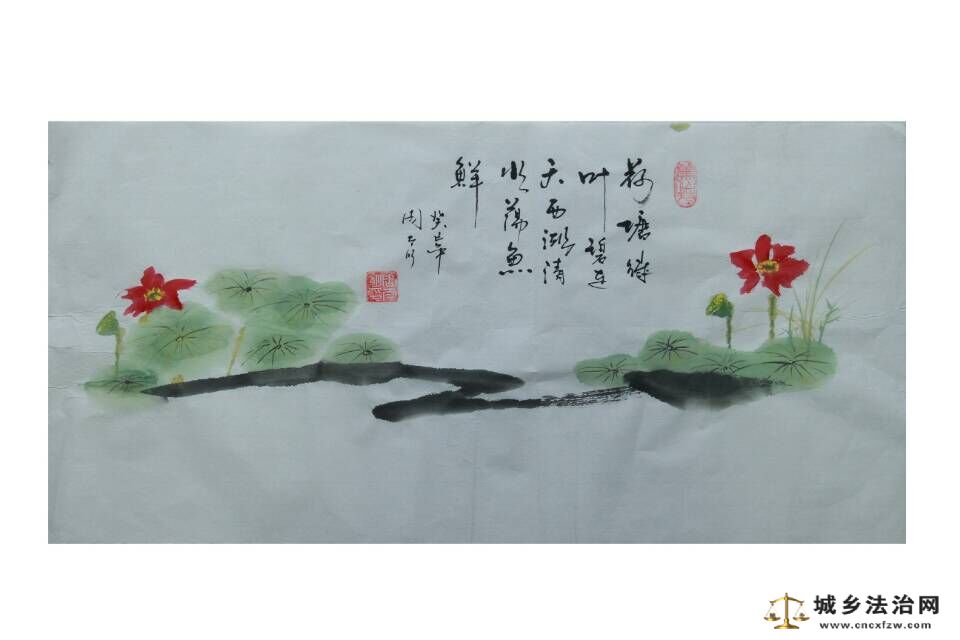 荷塘绿
叶碧连
天西湖清
水荡鱼
鲜
癸卯年
城乡法治网
www.cncxfzw.com